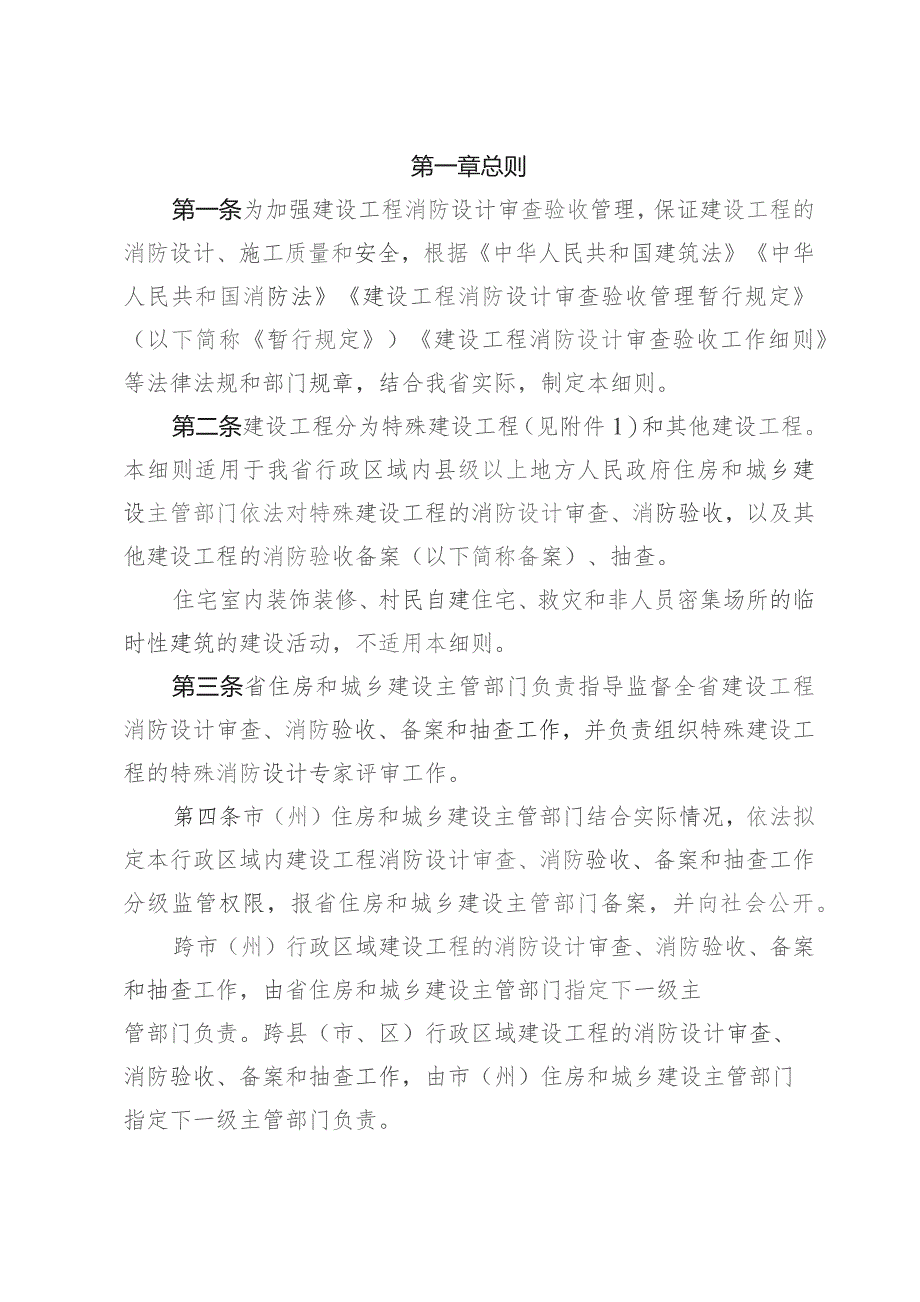 第一章总则
第一条为加强建设工程消防设计审查验收管理，保证建设工程的
消防设计、施工质量和安全，根据《中华人民共和国建筑法》《中华
人民共和国消防法》《建设工程消防设计审查验收管理暂行规定》
（以下简称《暂行规定》）《建设工程消防设计审查验收工作细则》
等法律法规和部门规章，结合我省实际，制定本细则。
第二条建设工程分为特殊建设工程(见附件1)和其他建设工程。
本细则适用于我省行政区域内县级以上地方人民政府住房和城乡建
设主管部门依法对特殊建设工程的消防设计审查、消防验收，以及其
他建设工程的消防验收备案（以下简称备案）、抽查。
住宅室内装饰装修、村民自建住宅、救灾和非人员密集场所的临
时性建筑的建设活动，不适用本细则。
第三条省住房和城乡建设主管部门负责指导监督全省建设工程
消防设计审查、消防验收、备案和抽查工作，并负责组织特殊建设工
程的特殊消防设计专家评审工作。
第四条市（州）住房和城乡建设主管部门结合实际情况，依法拟
定本行政区域内建设工程消防设计审查、消防验收、备案和抽查工作
分级监管权限，报省住房和城乡建设主管部门备案，并向社会公开。
跨市（州）行政区域建设工程的消防设计审查、消防验收、备案
和抽查工作，由省住房和城乡建设主管部门指定下一级主
管部门负责。跨县（市、区）行政区域建设工程的消防设计审查、
消防验收、备案和抽查工作，由市（州）住房和城乡建设主管部门
指定下一级主管部门负责。